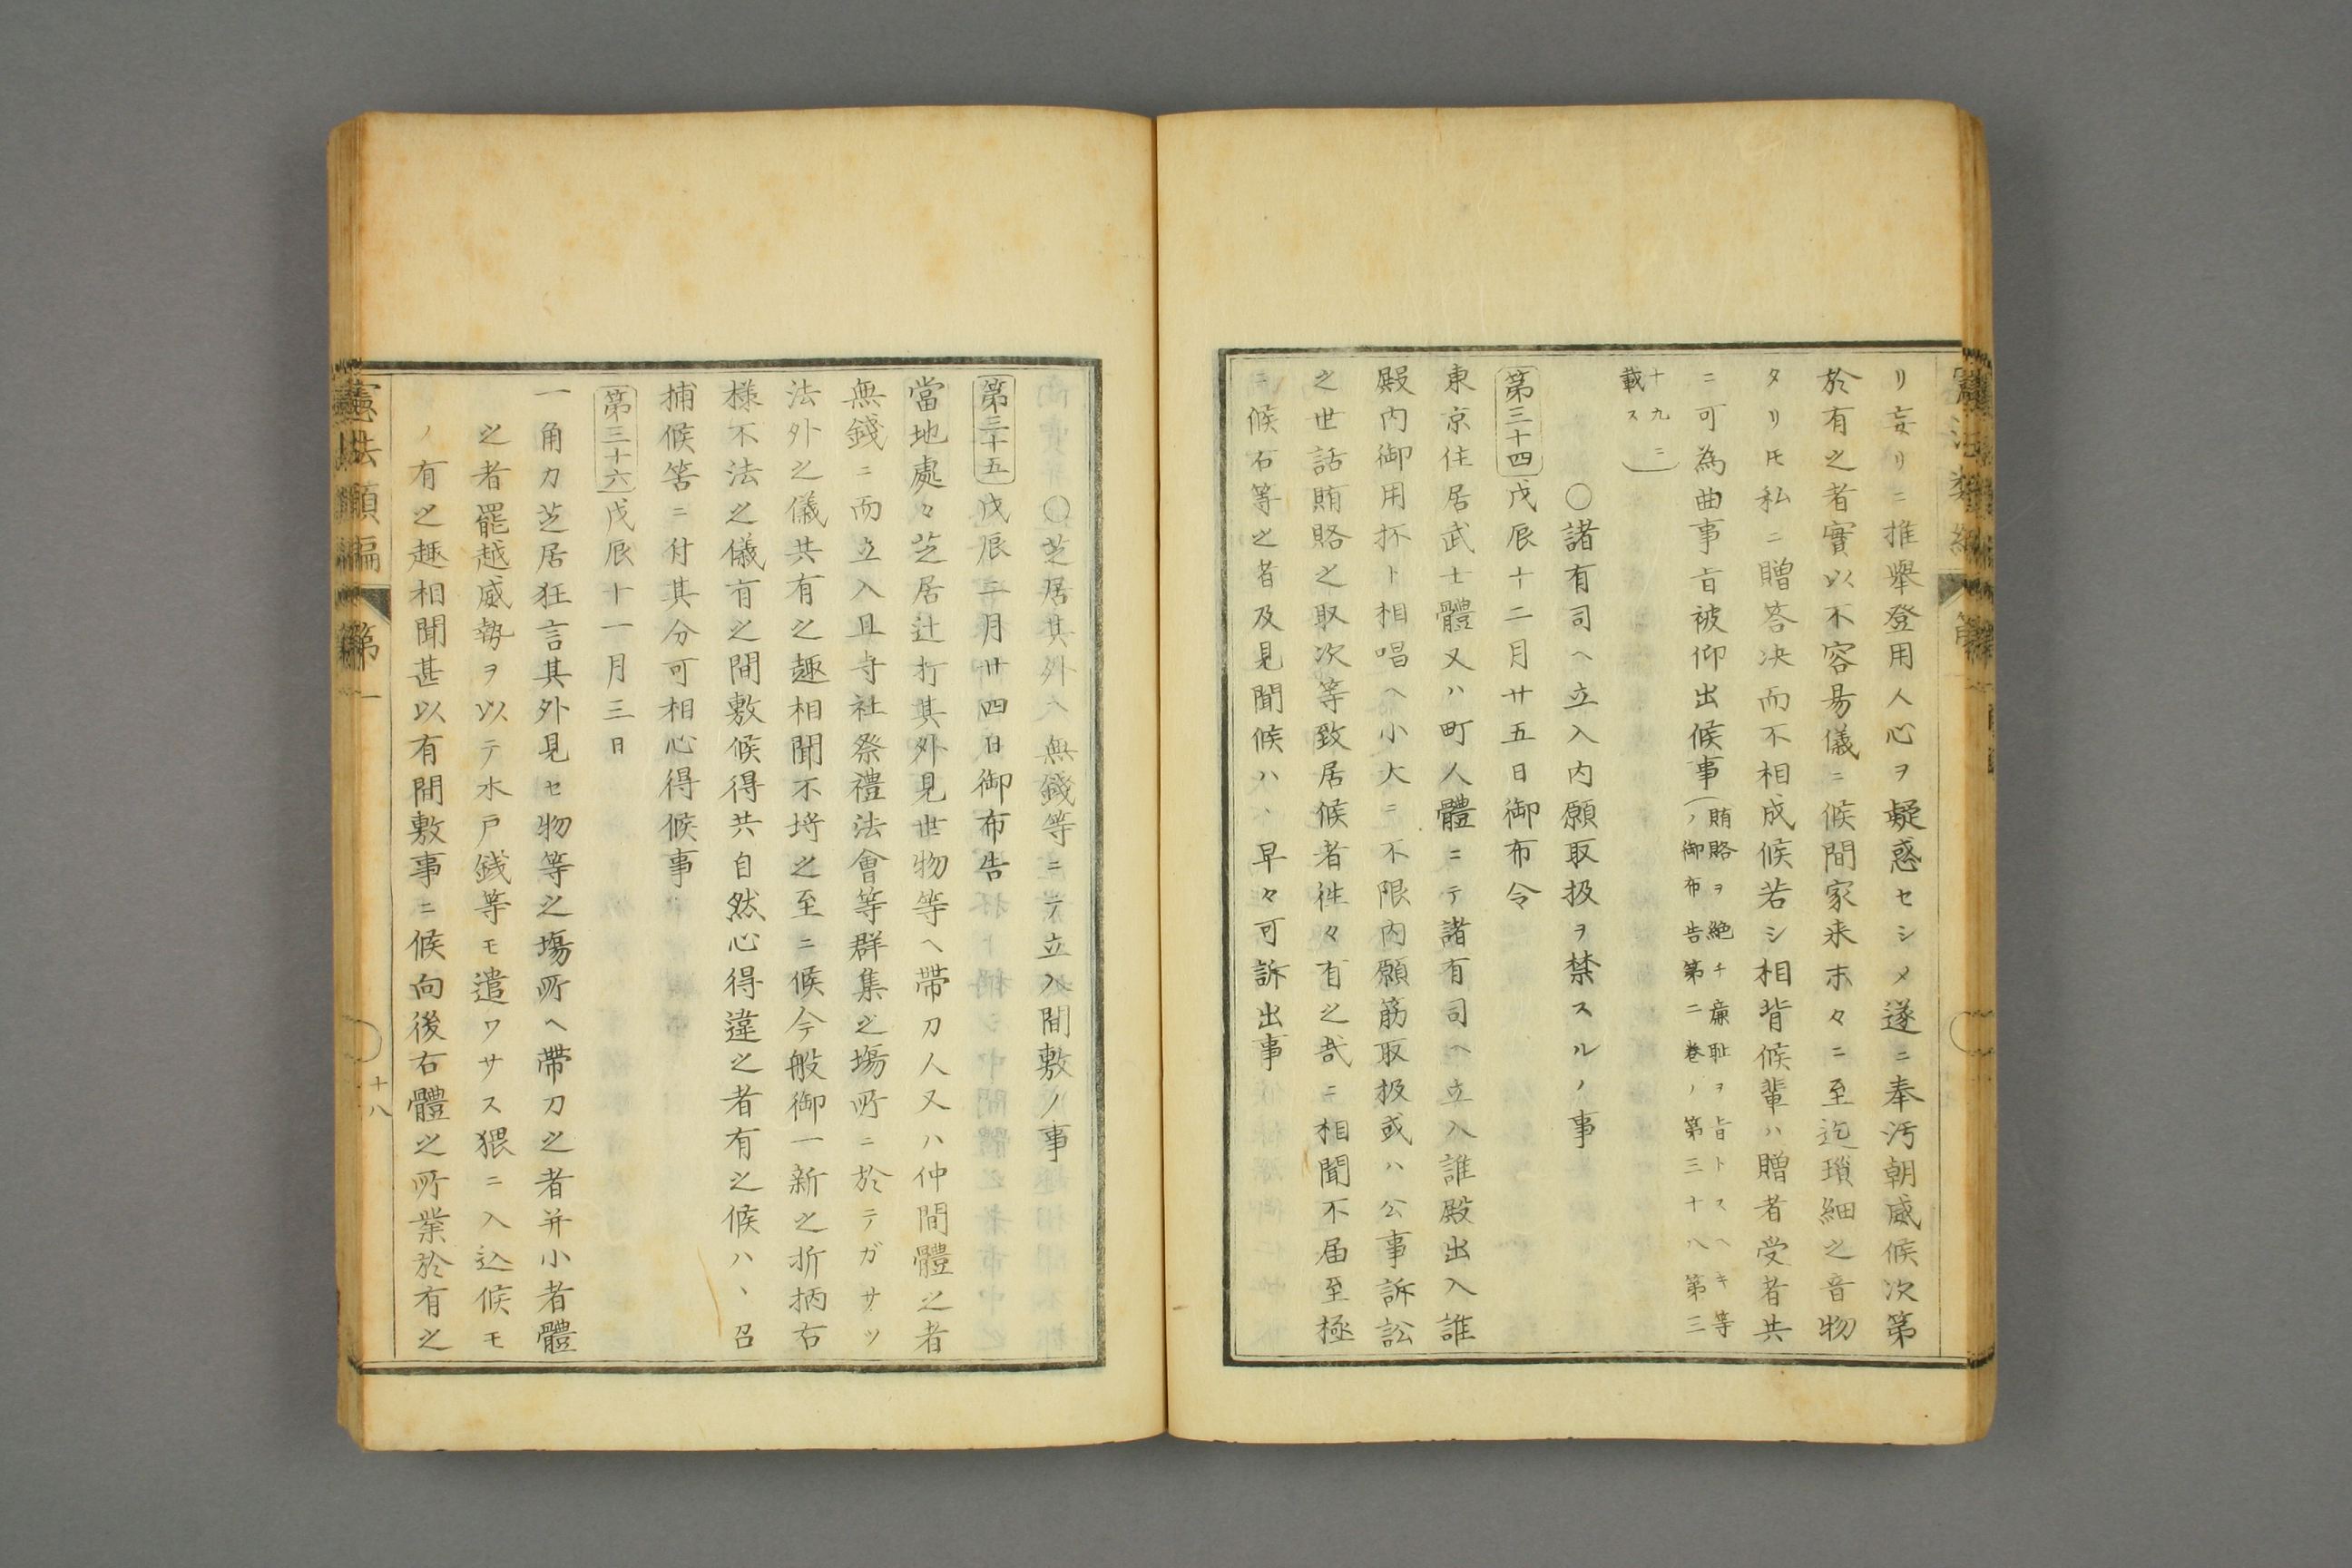 リ妄リニ推舉登用人心ヲ疑惑セシメ遂ニ奉汚朝威候次第
於有之者實以不容昜儀ニ候間家来末々ニ至迄瑣細之音物
タリ𪜈私ニ贈答决而不相成候若シ相背候輩ハ贈者受者共
ニ可為曲事旨被仰出候事
(賄賂ヲ絶チ廉耻ヲ旨トスヘキ等
ノ御布告第二卷ノ第三十八第三
十九ニ
載ス)
○諸有司ヘ立入内願取扱ヲ禁スルノ事
第三十四戊辰十二月廿五日御布令
東京住居武士體又ハ町人體ニテ諸有司ヘ立入誰殿出入誰
殿内御用抔ト相唱ヘ小大ニ不限内願筋取扱或ハ公事訴訟
之世話賄賂之取次等致居候者徃々有之哉ニ相聞不届至極
ニ候右等之者及見聞候ハ、早々可訴出事
○芝居其外ヘ無錢等ニテ立入間敷ノ事
第三十五戊辰三月廿四日御布告
當地處々芝居辻打其外見世物等ヘ帶刀人又ハ仲間體之者
無錢ニ而立入且寺社祭禮法會等群集之塲所ニ於テガサツ
法外之儀共有之趣相聞不埓之至ニ候今般御一新之折柄右
樣不法之儀有之間敷候得共自然心得違之者有之候ハ、召
捕候筈ニ付其分可相心得候事
第三十六戊辰十一月三日
一角力芝居狂言其外見セ物等之塲所ヘ帶刀之者并小者體
之者罷越威勢ヲ以テ木戸錢等モ遣ワサス猥ニ入込候モ
ノ有之趣相聞甚以有間敷事ニ候向後右體之所業於有之
憲法類編 第一
十八